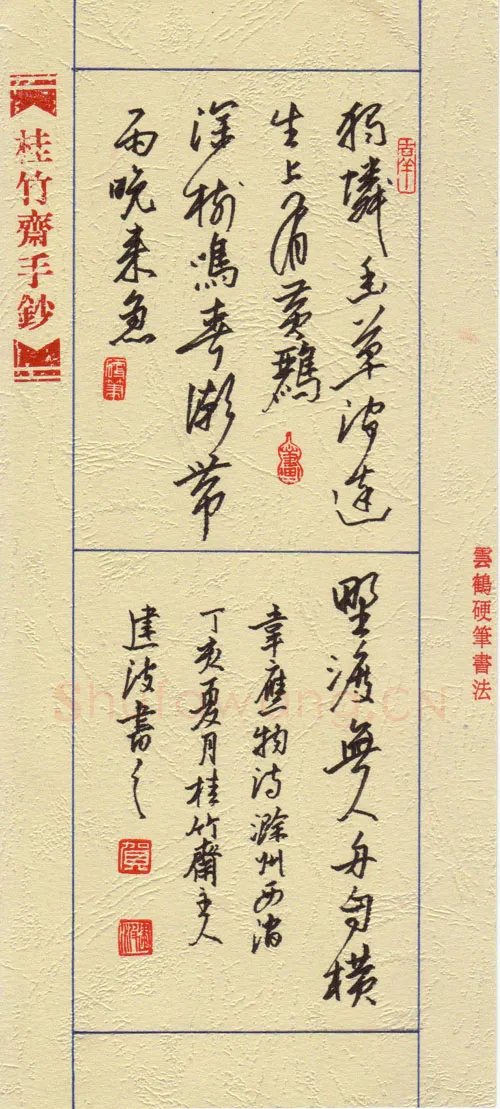 獨憐幽草澗邊
生上有黃鸝
深樹鳴春潮帶
雨晚來急
野渡無人舟自橫
韋應物詩滁州西澗
丁亥夏月桂竹齋主人
建波書之
賀
建波
桂竹齋手鈔
雲鶴硬筆書法
Shufawang.CN